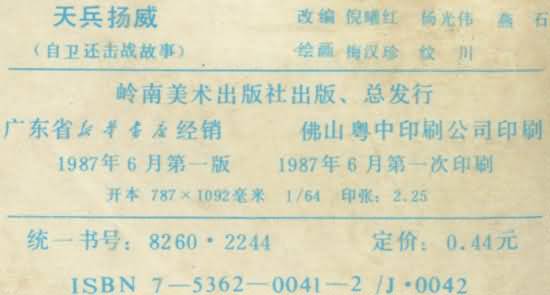 天兵扬威 改编 倪曦红 杨光伟 燕 石
（自卫还击战故事） 绘画 梅汉珍 纹 川
岭南美术出版社出版、总发行
广东省新华书店经销 佛山粤中印刷公司印刷
1987年6月第一版 1987年6月第一次印刷
开本 787×1092毫米 1/64 印张：2.25
统一书号：8260·2244 定价：0.44元
ISBN 7—5362—0041—2 /J·0042